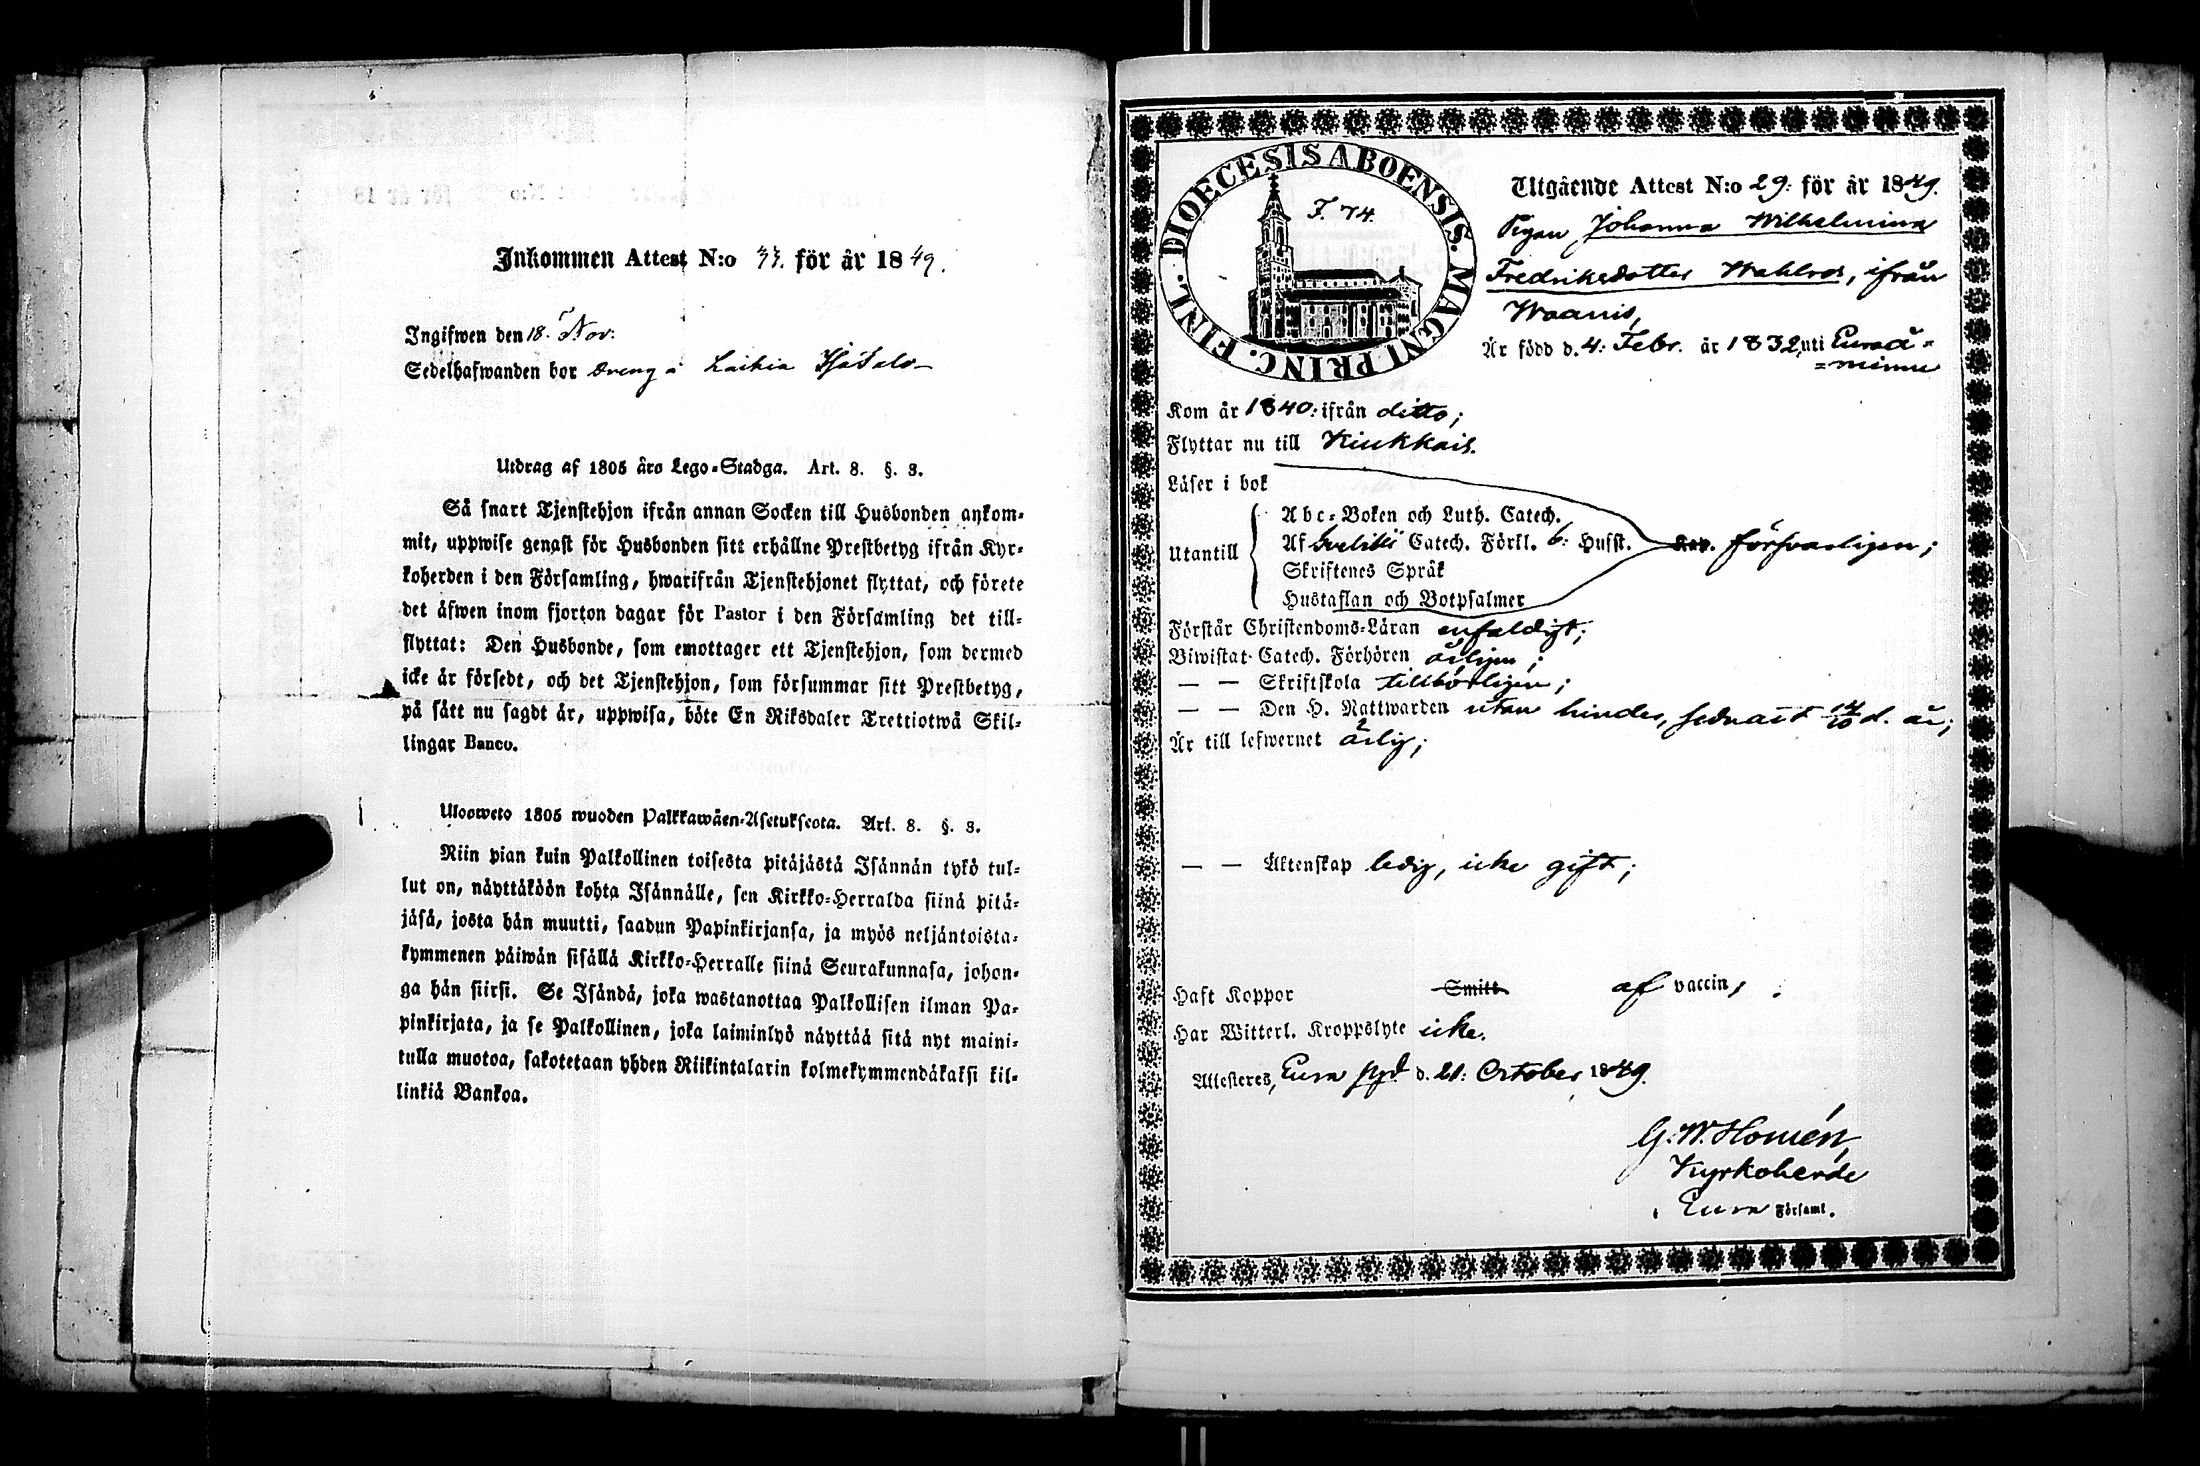 Inkommen Attest N:o 33. för år 1849.
Ingifwen den 18. Nov:
Sedelhafwanden bor dreng å Laihia
Utdrag af 1805 års Lego-Stadga. Art. 8. §. 3.
Så snart Tjenstehjon ifrån annan Socken till Husbonden ankom-
mit, uppwise genast för Husbonden sitt erhållne Prestbetyg ifrån Kyr-
koherden i den Församling, hwarifrån Tjenstehjonet flyttat, och förete
det äfwen inom fjorton dagar för Pastor i den Församling det till-
flyttat: Den Husbonde, som emottager ett Tjenstehjon, som dermed
icke är försedt, och det Tjenstehjon, som försummar sitt Prestbetyg,
på sätt nu sagdt är, uppwisa, böte En Riksdaler Trettiotwå Skil-
lingar Banco.
Ulosweto 1805 wuoden Palkkawäen-Asetuksesta. Art. 8. §. 3.
Niin pian kuin Palkollinen toisesta pitäjästä Isännän tykö tul-
lut on, näyttäköön kohta Isännälle, sen Kirkko-Herralda siinä pitä-
jäsä, josta hän muutti, saadun Papinkirjansa, ja myös neljäntoista-
kymmenen päiwän sisällä Kirkko-Herralle siinä Seurakunnasa, johon-
ga hän siirsi. Se Isändä, joka wastanottaa Palkollisen ilman Pa-
pinkirjata, ja se Palkollinen, joka laiminlyö näyttää sitä nyt maini-
tulla muotoa, sakotetaan yhden Riikintalarin kolmekymmendäkaksi kil-
linkiä Bankoa.
DIOECESIS ABOENSIS. MAGNI PRINC. FINL.
F. 74.
Utgående Attest N:o 29: för år 1849.
Pigan Johanna Wilhelmina
Fredriksdotter Wahlros, ifrån
Waanis,
Är född d. 4: Febr. år 1832, uti Euraå=
=minne
Kom år 1840: ifrån ditto;
Flyttar nu till Kiukkais.
Läser i bok
Utantill
Abc-Boken och Luth. Catech.
Af Svebilii Catech. Förkl. 6: Hufst. Kap. försvarligen;
Skriftenes Språk
Hustaflan och Botpsalmer
Förstår Christendoms-Läran enfaldigt;
Biwistat Catech. Förhören ärligen;
— — Skriftskola tillbörligen;
— — Den H. Nattwarden utan hinder, sednast 14/10 d. år;
Är till lefwernet ärlig;
— — Äktenskap ledig, icke gift;
Haft Koppor Smitt. af vaccin,
Har Witterl. Kroppslyte icke.
Attesteres, Eura pgd. d. 21: October 1849.
G. W. Homén,
Kyrkoherde
i Eura Församl.